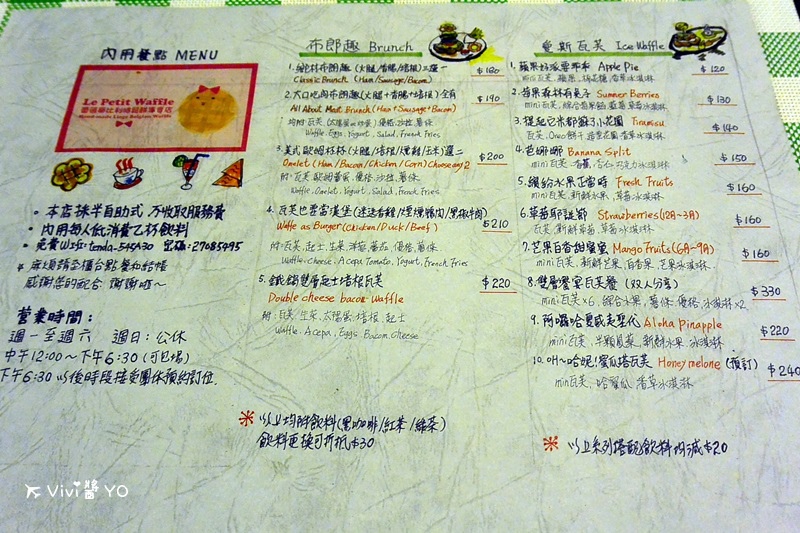 內用餐點 MENU
Le Petit Waffle
Handmade Liege Belgium Waffle
• 本店採半自助式 不收取服務費
• 內用每人低消費乙杯飲料
• 免費Wifi: tenda-545A30 密碼: 27085495
* 麻煩請至櫃台點餐和結帳
感謝您的配合 謝謝哦~
營業時間:
週一至週六 週日: 公休
中午12:00~下午6:30 (可包場)
下午6:30 以後時段接受團体預約訂位.
布郎趣 Brunch
1. 純粹布朗趣 (火腿/香腸/培根)三選一 $180
Classic Brunch (Ham/Sausage/Bacon)
2. 大口吃肉布朗趣(火腿+香腸+培根)全有 $190
All About Meat Brunch (Ham+Sausage+Bacon)
Waffle, Eggs, Yogurt, Salad, French Fries
3. 美式歐姆杯杯 (火腿/培根/燻雞/玉米)選二 $200
Omelet (Ham/Bacon/Chicken/Corn) Cheese any 2
附: 瓦芙 歐姆蛋, 優格, 沙拉, 薯條
Waffle, Omelet, Yogurt, Salad, French Fries
4. 瓦芙也要當漢堡 (迷迭香雞/煙燻鴨肉/黑椒牛肉) $210
Waffle as Burger (Chicken/Duck/Beef)
附: 瓦芙, 起士, 生菜, 洋菇, 蕃茄, 優格, 薯條
Waffle, Cheese, Acepa, Tomato, Yogurt, French Fries
5. 鐵鍋雙層起士培根瓦芙 $220
Double cheese bacon Waffle
附: 瓦芙, 生菜, 太陽蛋, 培根, 起士
Waffle, Acepa, Eggs, Bacon, Cheese
* 以上均附飲料(黑咖啡/紅茶/綠茶)
飲料更換可折抵$30
愛斯瓦芙 Ice Waffle
1. Apple Pie $120
2. 莓果森林有果子 Summer Berries $130
3. Tiramisu $140
瓦芙, Oreo餅干
4. 芭娜娜 Banana Split $150
5. 繽紛水果正當時 Fresh Fruits $160
mini瓦芙, 新鮮水果, 草莓冰淇淋
6. 草莓耶誕節 Strawberries(12A~3A) $160
mini瓦芙, 新鮮草莓, 草莓冰淇淋
7. 芒果百香甜蜜蜜 Mango Fruits(6A~9A) $160
mini瓦芙, 新鮮芒果, 百香果, 芒果冰淇淋
8. 雙層饗宴瓦芙餐 (双人分享) $330
mini瓦芙×6, 綜合水果, 薯條, 優格, 冰淇淋×2
9. 阿囉哈夏威夷聖代 Aloha Pinapple $220
mini瓦芙, 半顆鳳梨, 新鮮水果, 冰淇淋
10. 呷~哈呢!蜜瓜搭瓦芙 Honey melone (預訂) $240
mini瓦芙, 哈蜜瓜, 香草冰淇淋
* 以上系列搭配飲料均減$20
Vivi醬 YO